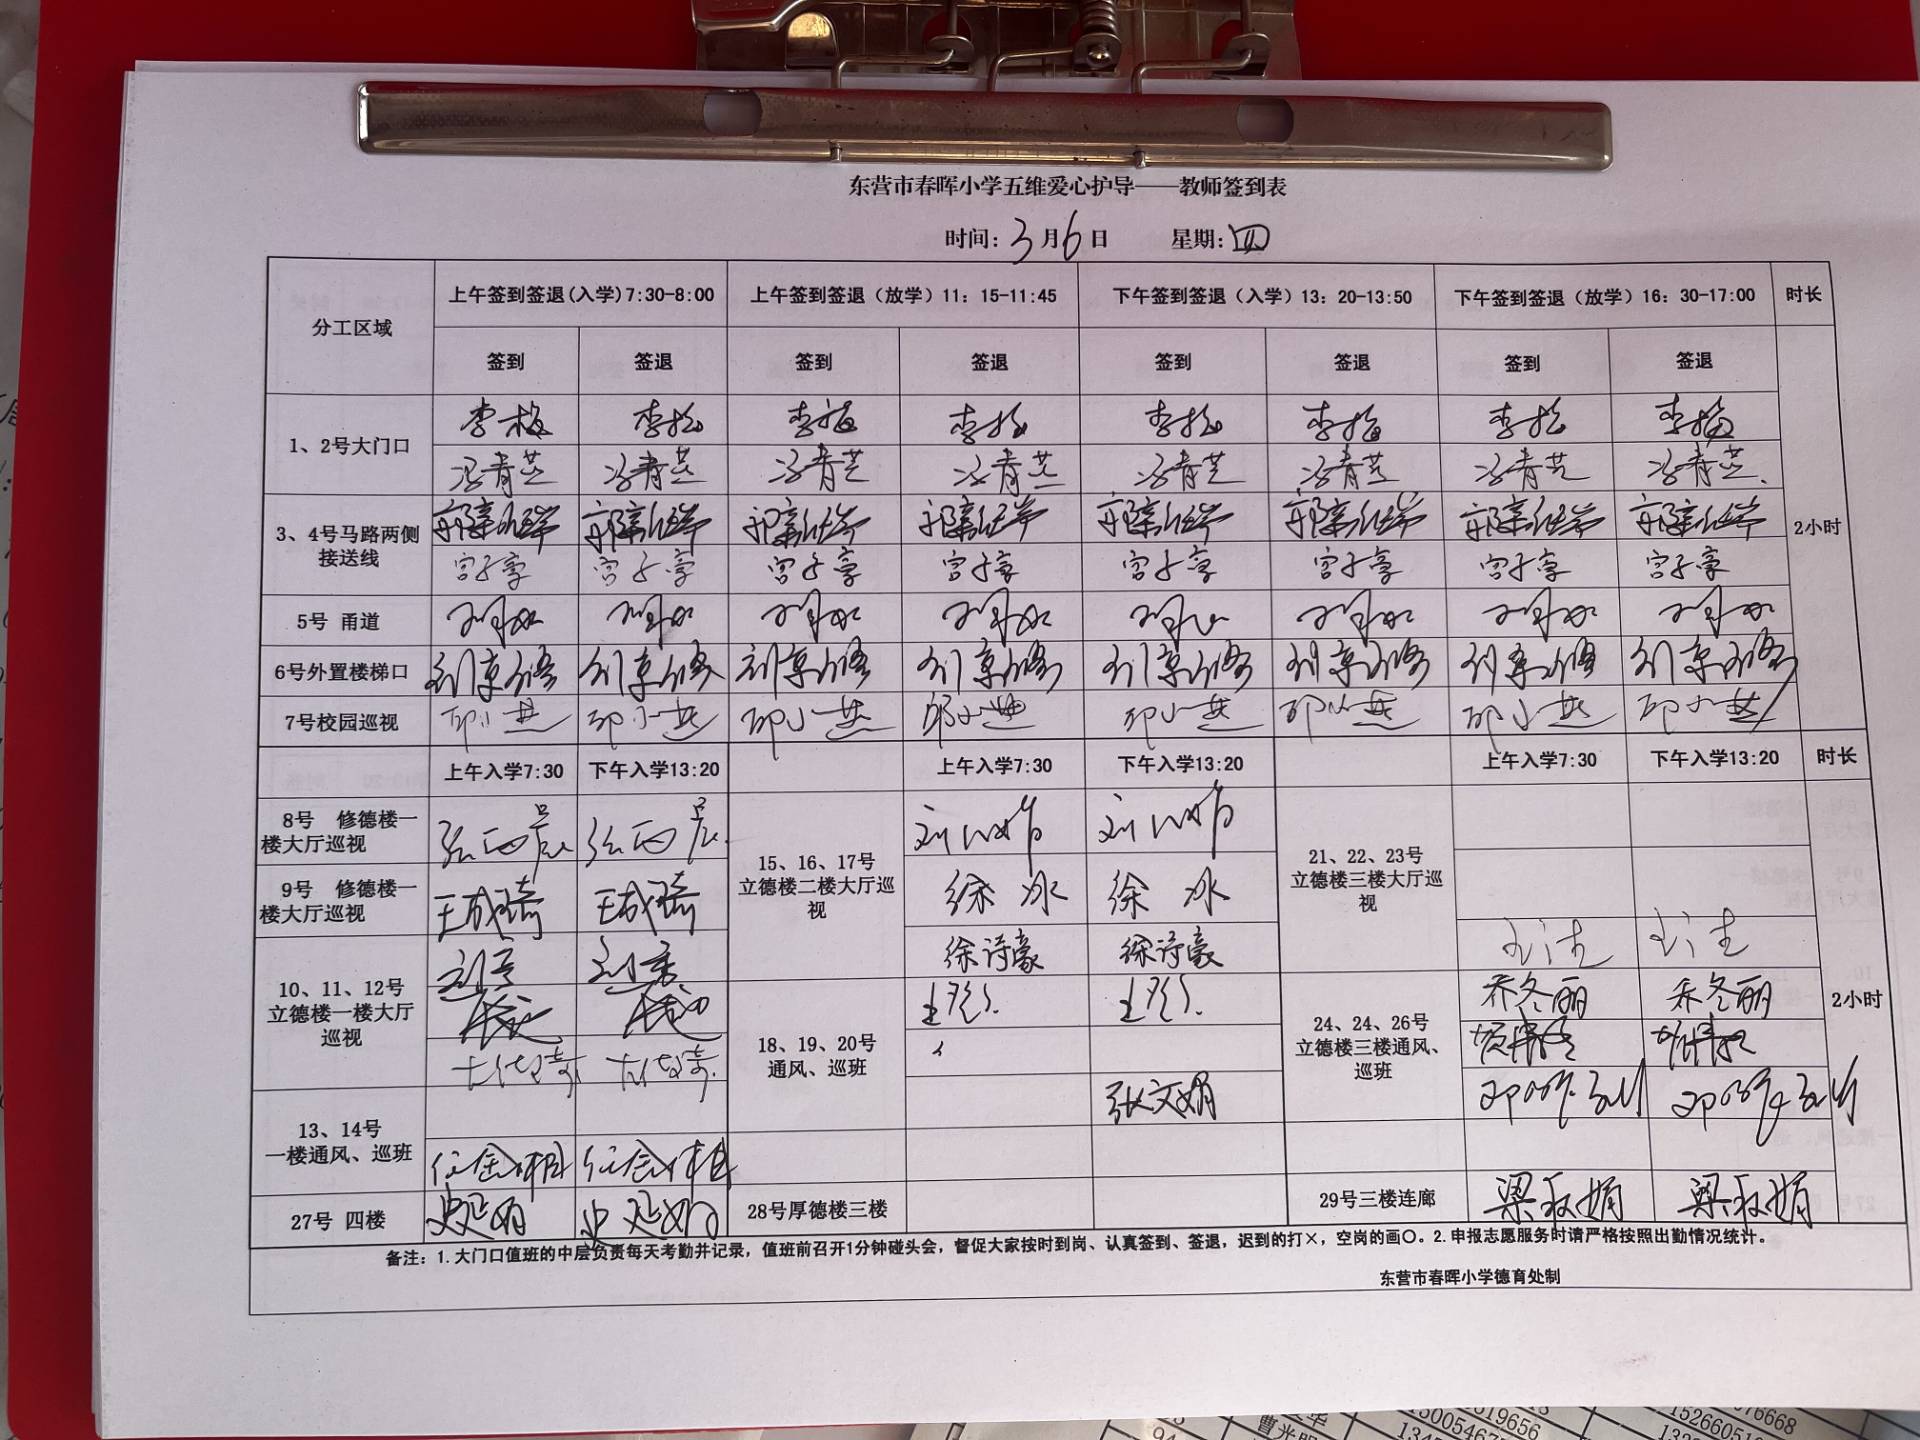 东营市春晖小学五维爱心护导——教师签到表
时间：3月6日 星期：四
分工区域 上午签到签退(入学)7:30-8:00 上午签到签退（放学）11：15-11:45 下午签到签退（入学）13：20-13:50 下午签到签退（放学）16：30-17:00 时长
签到 签退 签到 签退 签到 签退 签到 签退
1、2号大门口 李梅 李梅 李梅 李梅 李梅 李梅 李梅 李梅
冯青芝 冯青芝 冯青芝 冯青芝 冯青芝 冯青芝 冯青芝 冯青芝
3、4号马路两侧
接送线
2小时
宫子豪 宫子豪 宫子豪 宫子豪 宫子豪 宫子豪 宫子豪 宫子豪
5号 甬道
6号外置楼梯口 刘京修 刘京修 刘京修 刘京修 刘京修 刘京修 刘京修 刘京修
7号校园巡视 邱小燕 邱小燕 邱小燕 邱小燕 邱小燕 邱小燕 邱小燕 邱小燕
上午入学7:30 下午入学13:20 上午入学7:30 下午入学13:20 上午入学7:30 下午入学13:20 时长
8号 修德楼一
楼大厅巡视
张雨晨 张雨晨
15、16、17号
立德楼二楼大厅巡
视
21、22、23号
立德楼三楼大厅巡
视
9号 修德楼一
楼大厅巡视
王成琦 王成琦 徐冰 徐冰
10、11、12号
立德楼一楼大厅
巡视
徐诗豪 徐诗豪
18、19、20号
通风、巡班
乔冬丽 乔冬丽
24、24、26号
立德楼三楼通风、
巡班
2小时
张文娟
13、14号
一楼通风、巡班
27号 四楼 史延娟 史延娟 28号厚德楼三楼 29号三楼连廊 梁秋娟 梁秋娟
备注：1.大门口值班的中层负责每天考勤并记录，值班前召开1分钟碰头会，督促大家按时到岗、认真签到、签退，迟到的打×，空岗的画○。2.申报志愿服务时请严格按照出勤情况统计。
东营市春晖小学德育处制